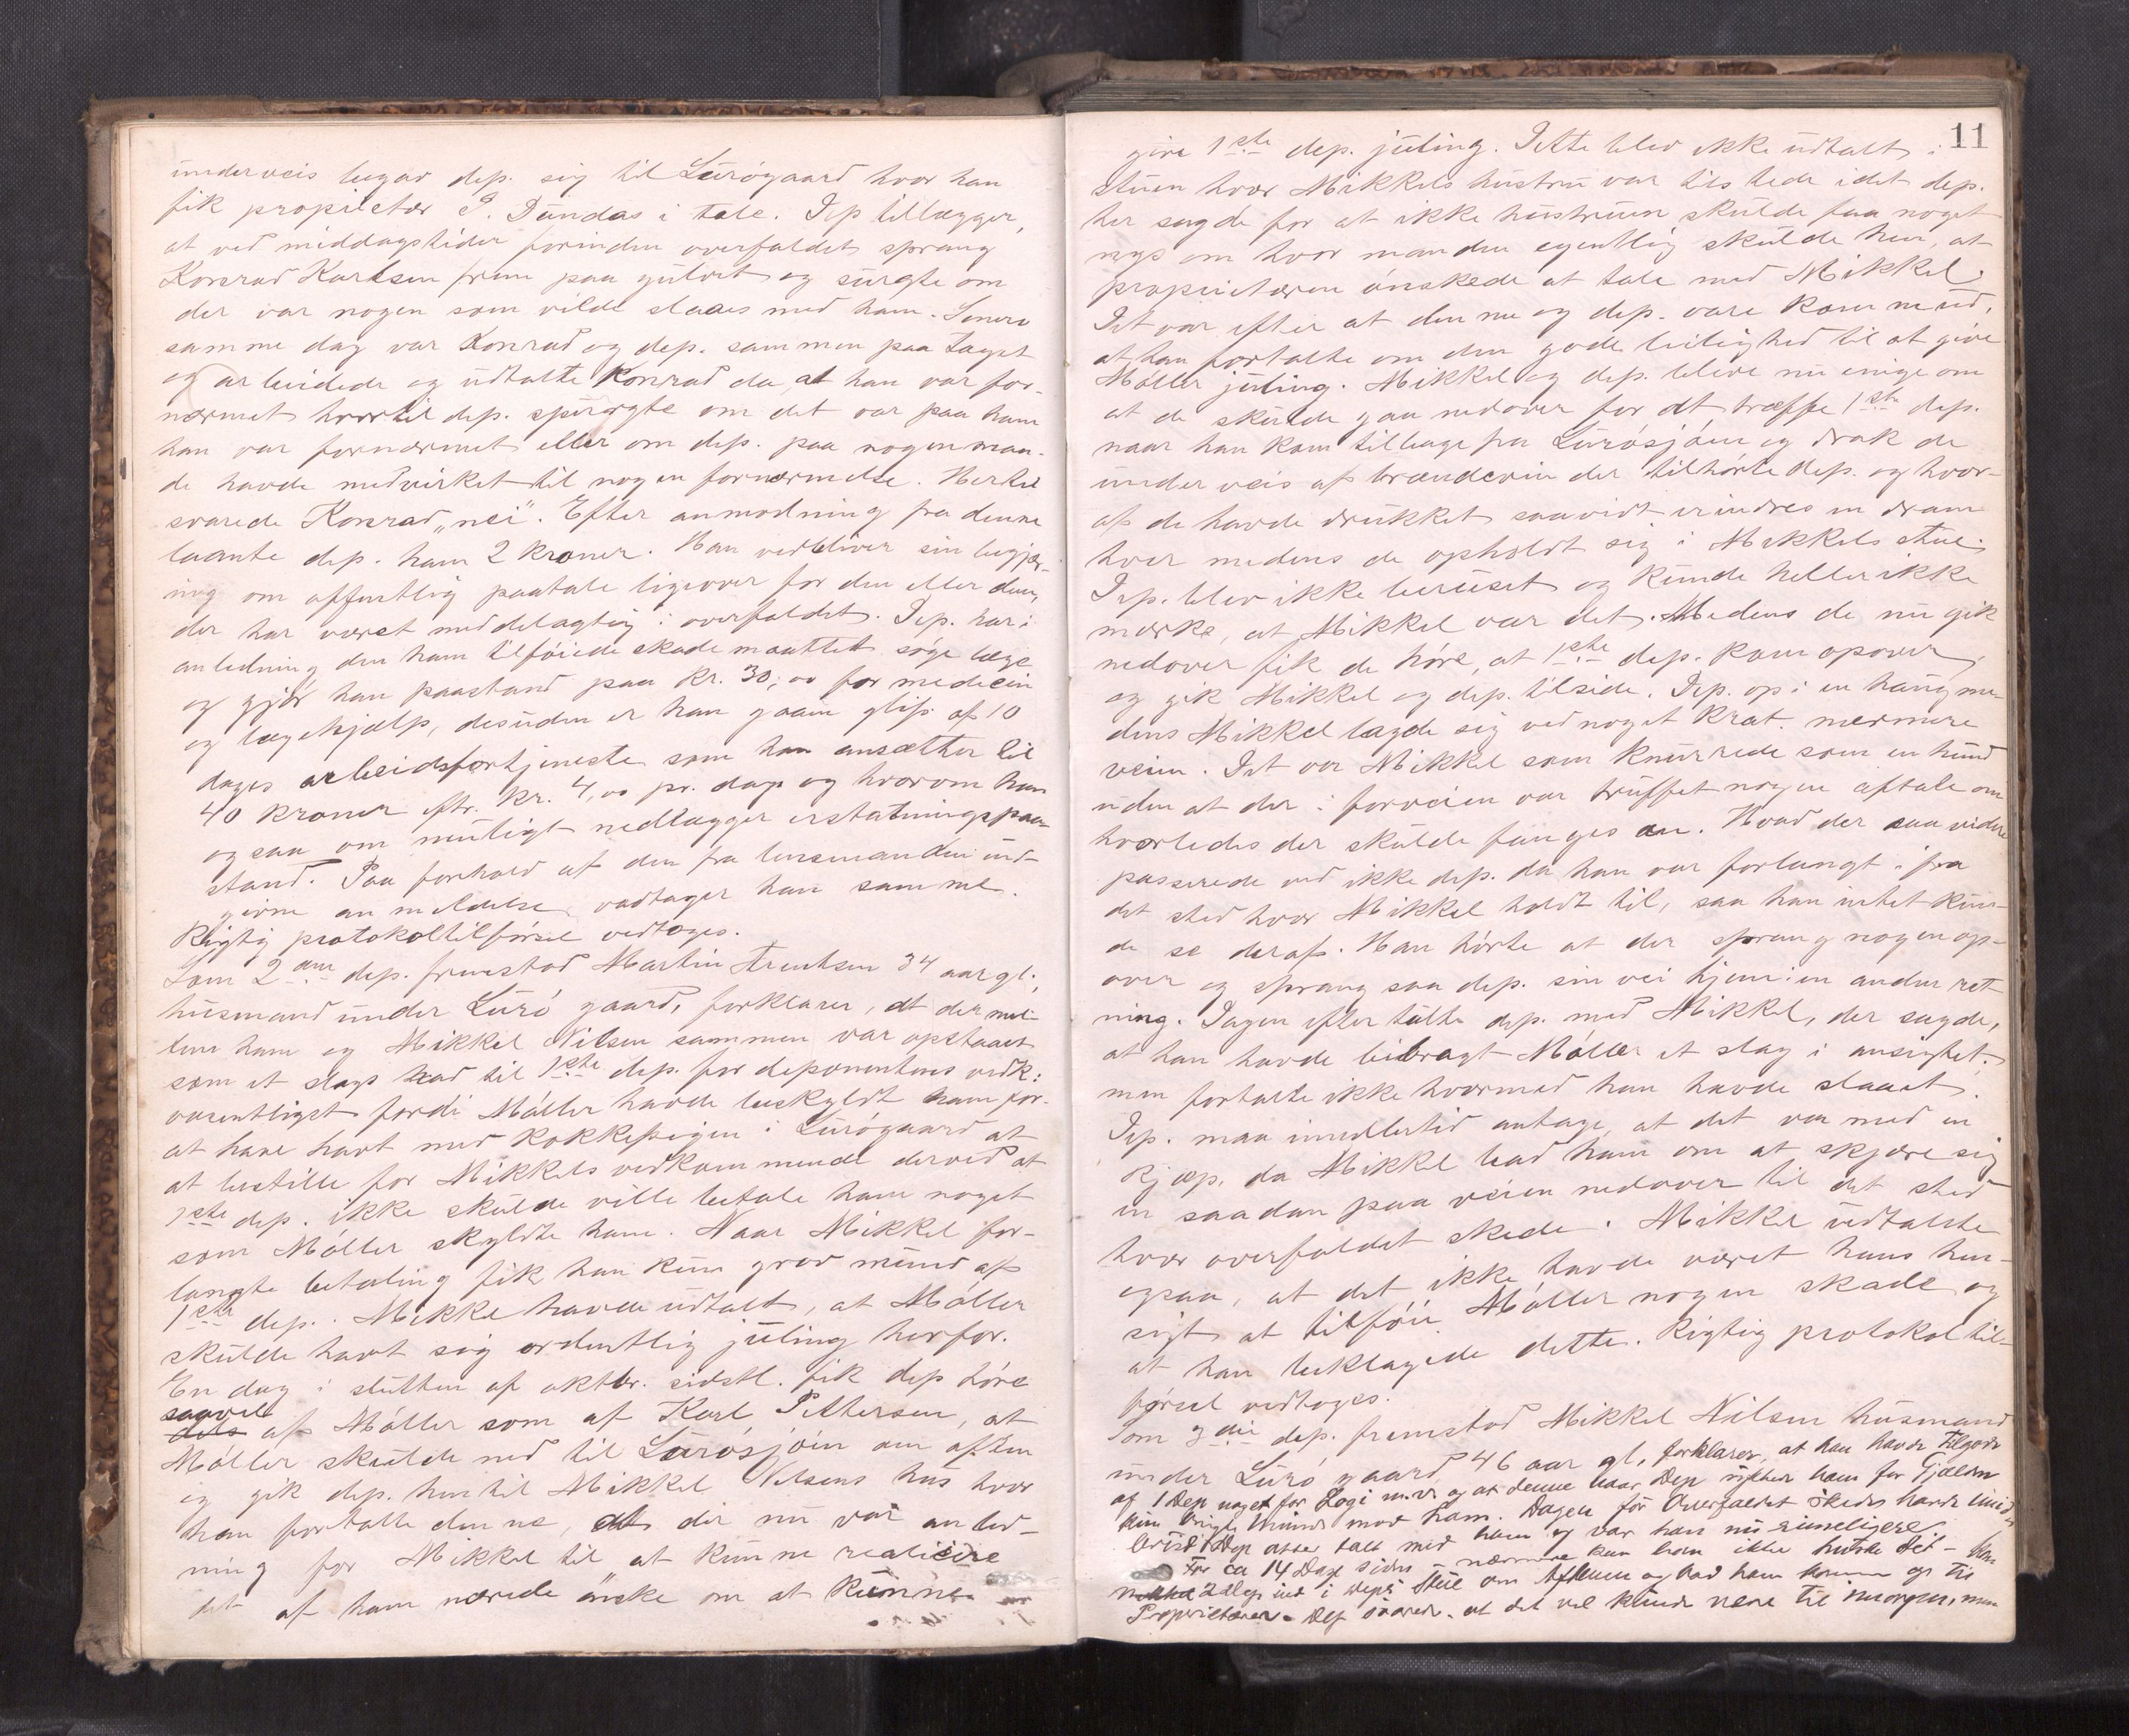 underveis begav dep. sig til Lurøgaard hvor han
fik proprietær P. Dundas i tale. Dep tillægger,
at ved middagstider forinden overfaldet sprang
Konrad Karlsen frem paa gulvet og spurgte om
der var nogen som vilde slaaes med ham. Senere
samme dag var Konrad og dep. sammen paa taget
og arbeidede og udtalte Konrad da at han var for-
nærmet hvortil dep. spurgte om det var paa ham
han var fornærmet eller om dep. paa nogen maa-
de havde medvirket til nogen fornærmelse. Hertil
svarede Konrad „nei". Efter anmodning fra denne
laante dep. ham 2 kroner. Han vedbliver sin begjæ-
ring om offentlig paatale ligeover for den eller dem,
der har været meddelagtig i overfaldet. Dep. har i
anledning den ham tilføiede skade maattet søge læge
og gjør han paastand paa kr. 30,00 for medecin
og lægehjælp, desuden er han gaaet glip af 10
dages arbeidsfortjeneste som han ansætter til
40 kroner eftr. kr. 4,00 pr. dag og hvorom han
ogsaa om muligt nedlægger erstatningspaa-
stand. Paa forhold af den fra lensmanden ind-
givne anmeldelse vedtager han samme.
Rigtig protokoltilførsel vedtoges.
Som 2den dep. fremstod Martin Arentsen 34 aar gl.,
husmand under Lurø gaard, forklarer, at der mel-
lem ham og Mikkel Nilsen sammen var opstaaet
som et slags had til 1ste dep. for deponentens vedk:
væsentligst fordi Møller havde beskyldt ham for
at have havt med kokkepigen i Lurøgaard at
at bestille for Mikkels vedkommende derved at
1ste dep. ikke skulde ville betale ham noget
som Møller skyldte ham. Naar Mikkel for-
langte betaling fik han kun grov mund af
1ste dep. Mikkel havde udtalt, at Møller
skulde havt sig ordentlig juling herfor.
En dag i slutten af oktbr. sidstl. fik dep høre
saavel
dels af Møller som af Karl Pettersen, at
Møller skulde ned til Lurøsjøen om aften
og gik dep. hen til Mikkel Nilsens hus hvor
han fortalte denne, at der nu var anled-
ning for Mikkel til at kunne realisere
det af ham nærede ønske om at kunne
11
give 1ste dep. juling. Dette blev ikke udtalt i
stuen hvor Mikkels hustru var tilstede idet dep.
her sagde for at ikke hustruen skulde faa noget
nys om hvor manden egentlig skulde hen, at
proprietæren ønskede at tale med Mikkel.
Det var efter at denne og dep. vare komne ud,
at han fortalte om den gode leilighed til at give
Møller juling. Mikkel og dep. bleve nu enige om
at de skulde gaa nedover for at træffe 1ste dep.
naar han kom tilbage fra Lurøsjøen og drak de
underveis af brændevin der tilhørte dep. og hvor-
af de havde drukket saavidt erindres en dram
hver medens de opholdt sig i Mikkels stue.
Dep. blev ikke beruset og kunde heller ikke
mærke, at Mikkel var det. Medens de nu gik
nedover fik de høre, at 1ste dep. kom opover,
og gik Mikkel og dep. tilside. Dep. op i en haug me-
dens Mikkel lagde sig ved noget krat nærmere
veien. Det var Mikkel som knurrede som en hund
uden at der i forveien var truffet nogen aftale om
hvorledes der skulde fanges an. Hvad der saa videre
passerede ved ikke dep. da han var forlangt ifra
det sted hvor Mikkel holdt til, saa han intet kun-
de se deraf. Han hørte at der sprang nogen op-
over og sprang saa dep. sin vei hjem i en anden ret-
ning. Dagen efter talte dep. med Mikkel, der sagde,
at han havde bibragt Møller et slag i ansigtet,
men fortalte ikke hvormed han havde slaaet.
Dep. maa imidlertid antage, at det var med en
kjæp, da Mikkel bad ham om at skjære sig
en saadan paa veien nedover til det sted
hvor overfaldet skede. Mikkel udtalte
ogsaa, at det ikke havde været hans hen-
sigt at tilføie Møller nogen skade og
at han beklagede dette. Rigtig protokoltil-
førsel vedtoges.
Som 3die dep. fremstod Mikkel Nilsen husmand
under Lurø gaard 46 aar gl, forklarer, at han havde tilgode
af 1 Dep noget for Logi m.v. og at denne naar Dep søkte ham for Gjælden
kun brugte Mund mod ham. Dagen før Overfaldet skede havde imid-
1 Dep atter talt med ham og var han nu rimeligere
For ca 14 Dage siden nærmere kan han ikke huske det – kom
2 Dep ind i deps Stue om Aftenen og bad ham komme op til
Proprietæren. Dep svarede at det vel kunde være til imorgen, men